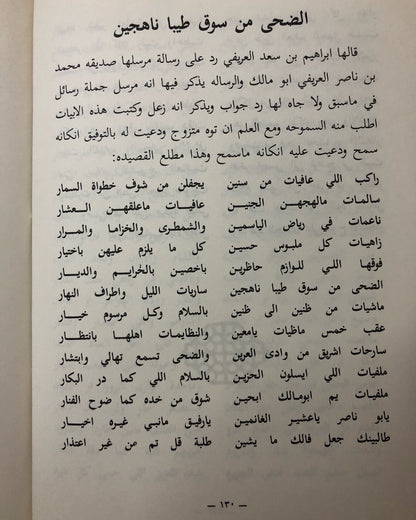 الضحى من سوق طيبا ناهجين
قالها ابراهيم بن سعد العريفي رد على رسالة مرسلها صديقه محمد
بن ناصر العريفي ابو مالك والرساله يذكر فيها انه مرسل جملة رسائل
في ماسبق ولا جاه لها رد جواب ويذكر انه زعل وكتبت هذه الابيات
اطلب منه السموحه ومع العلم ان توه متزوج ودعيت له بالتوفيق انكانه
سمح ودعيت عليه انكانه ماسمح وهذا مطلع القصيده:
راكب اللي عافيات من سنين يجفلن من شوف خطواة السمار
سالمات مالهجهن الجنين عافيات ماعلقهن العشار
ناعمات في رياض الياسمين والشمطرى والخزاما والمرار
زاهيات كل ملبوس حسين كل ما يلزم عليهن باختيار
فوقها اللي للوازم حاظرين باخصين بالخرايم والديار
الضحى من سوق طيبا ناهجين ساريات الليل واطراف النهار
ماشيات من ظنين الى ظنين بالسلام وكل مرسوم خيار
عقب خمس ماظيات يامعين والنظايمات اهلها بانتظار
سارحات اشريق من وادى العرين والضحى تسمع تهالي وابتشار
ملفيات اللي ايسلون الحزين بالسلام اللي كما در البكار
ملفيات يم ابومالك ابحين شوق من خده كما ضوح الفنار
يابو ناصر ياعشير الغانمين يارفيق مانبي غيره اخيار
طالبينك جعل فالك ما يشين طلبة قل تم من غير اعتذار
— ١٣٠ —